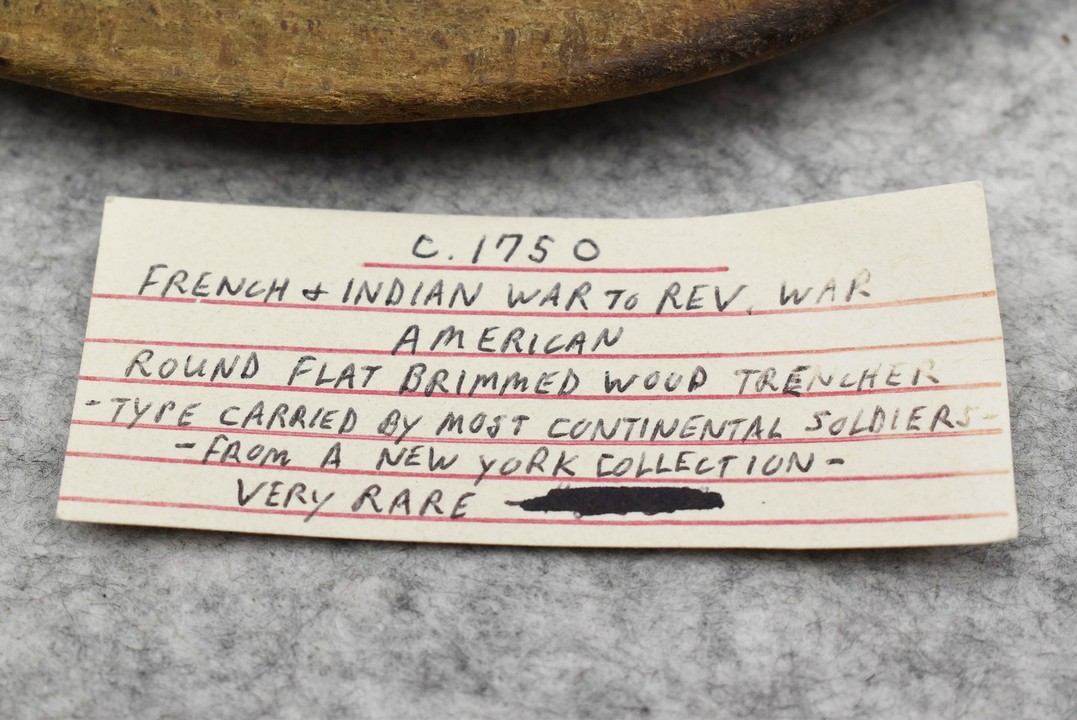 C. 1750
FRENCH & INDIAN WAR TO REV. WAR
AMERICAN
ROUND FLAT BRIMMED WOOD TRENCHER
-TYPE CARRIED BY MOST CONTINENTAL SOLDIERS-
-FROM A NEW YORK COLLECTION-
VERY RARE